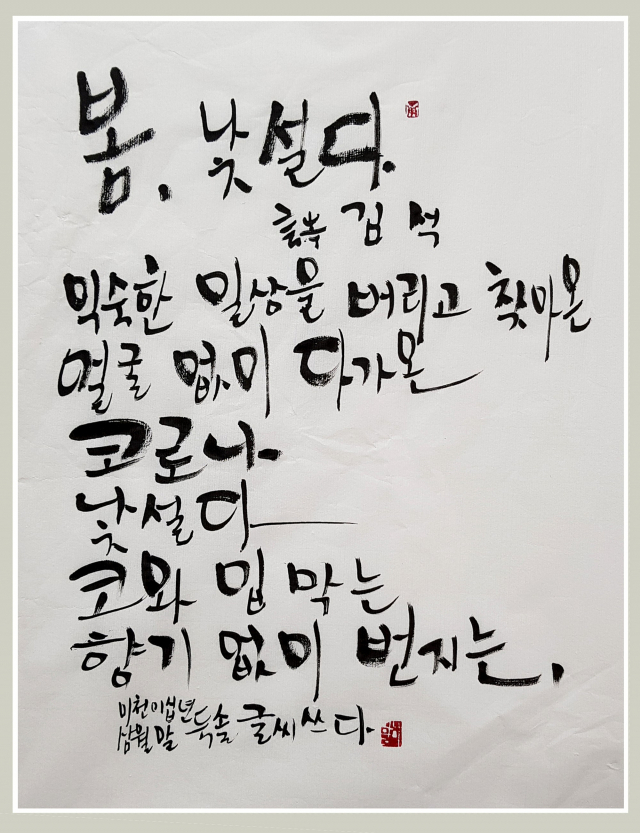 봄, 낯설다.
글 김석
익숙한 일상을 버리고 찾아온
얼굴 없이 다가온
코로나
낯설다
코와 입 막는
향기 없이 번지는,
이천이십년
삼월말 둑솔 글씨쓰다.